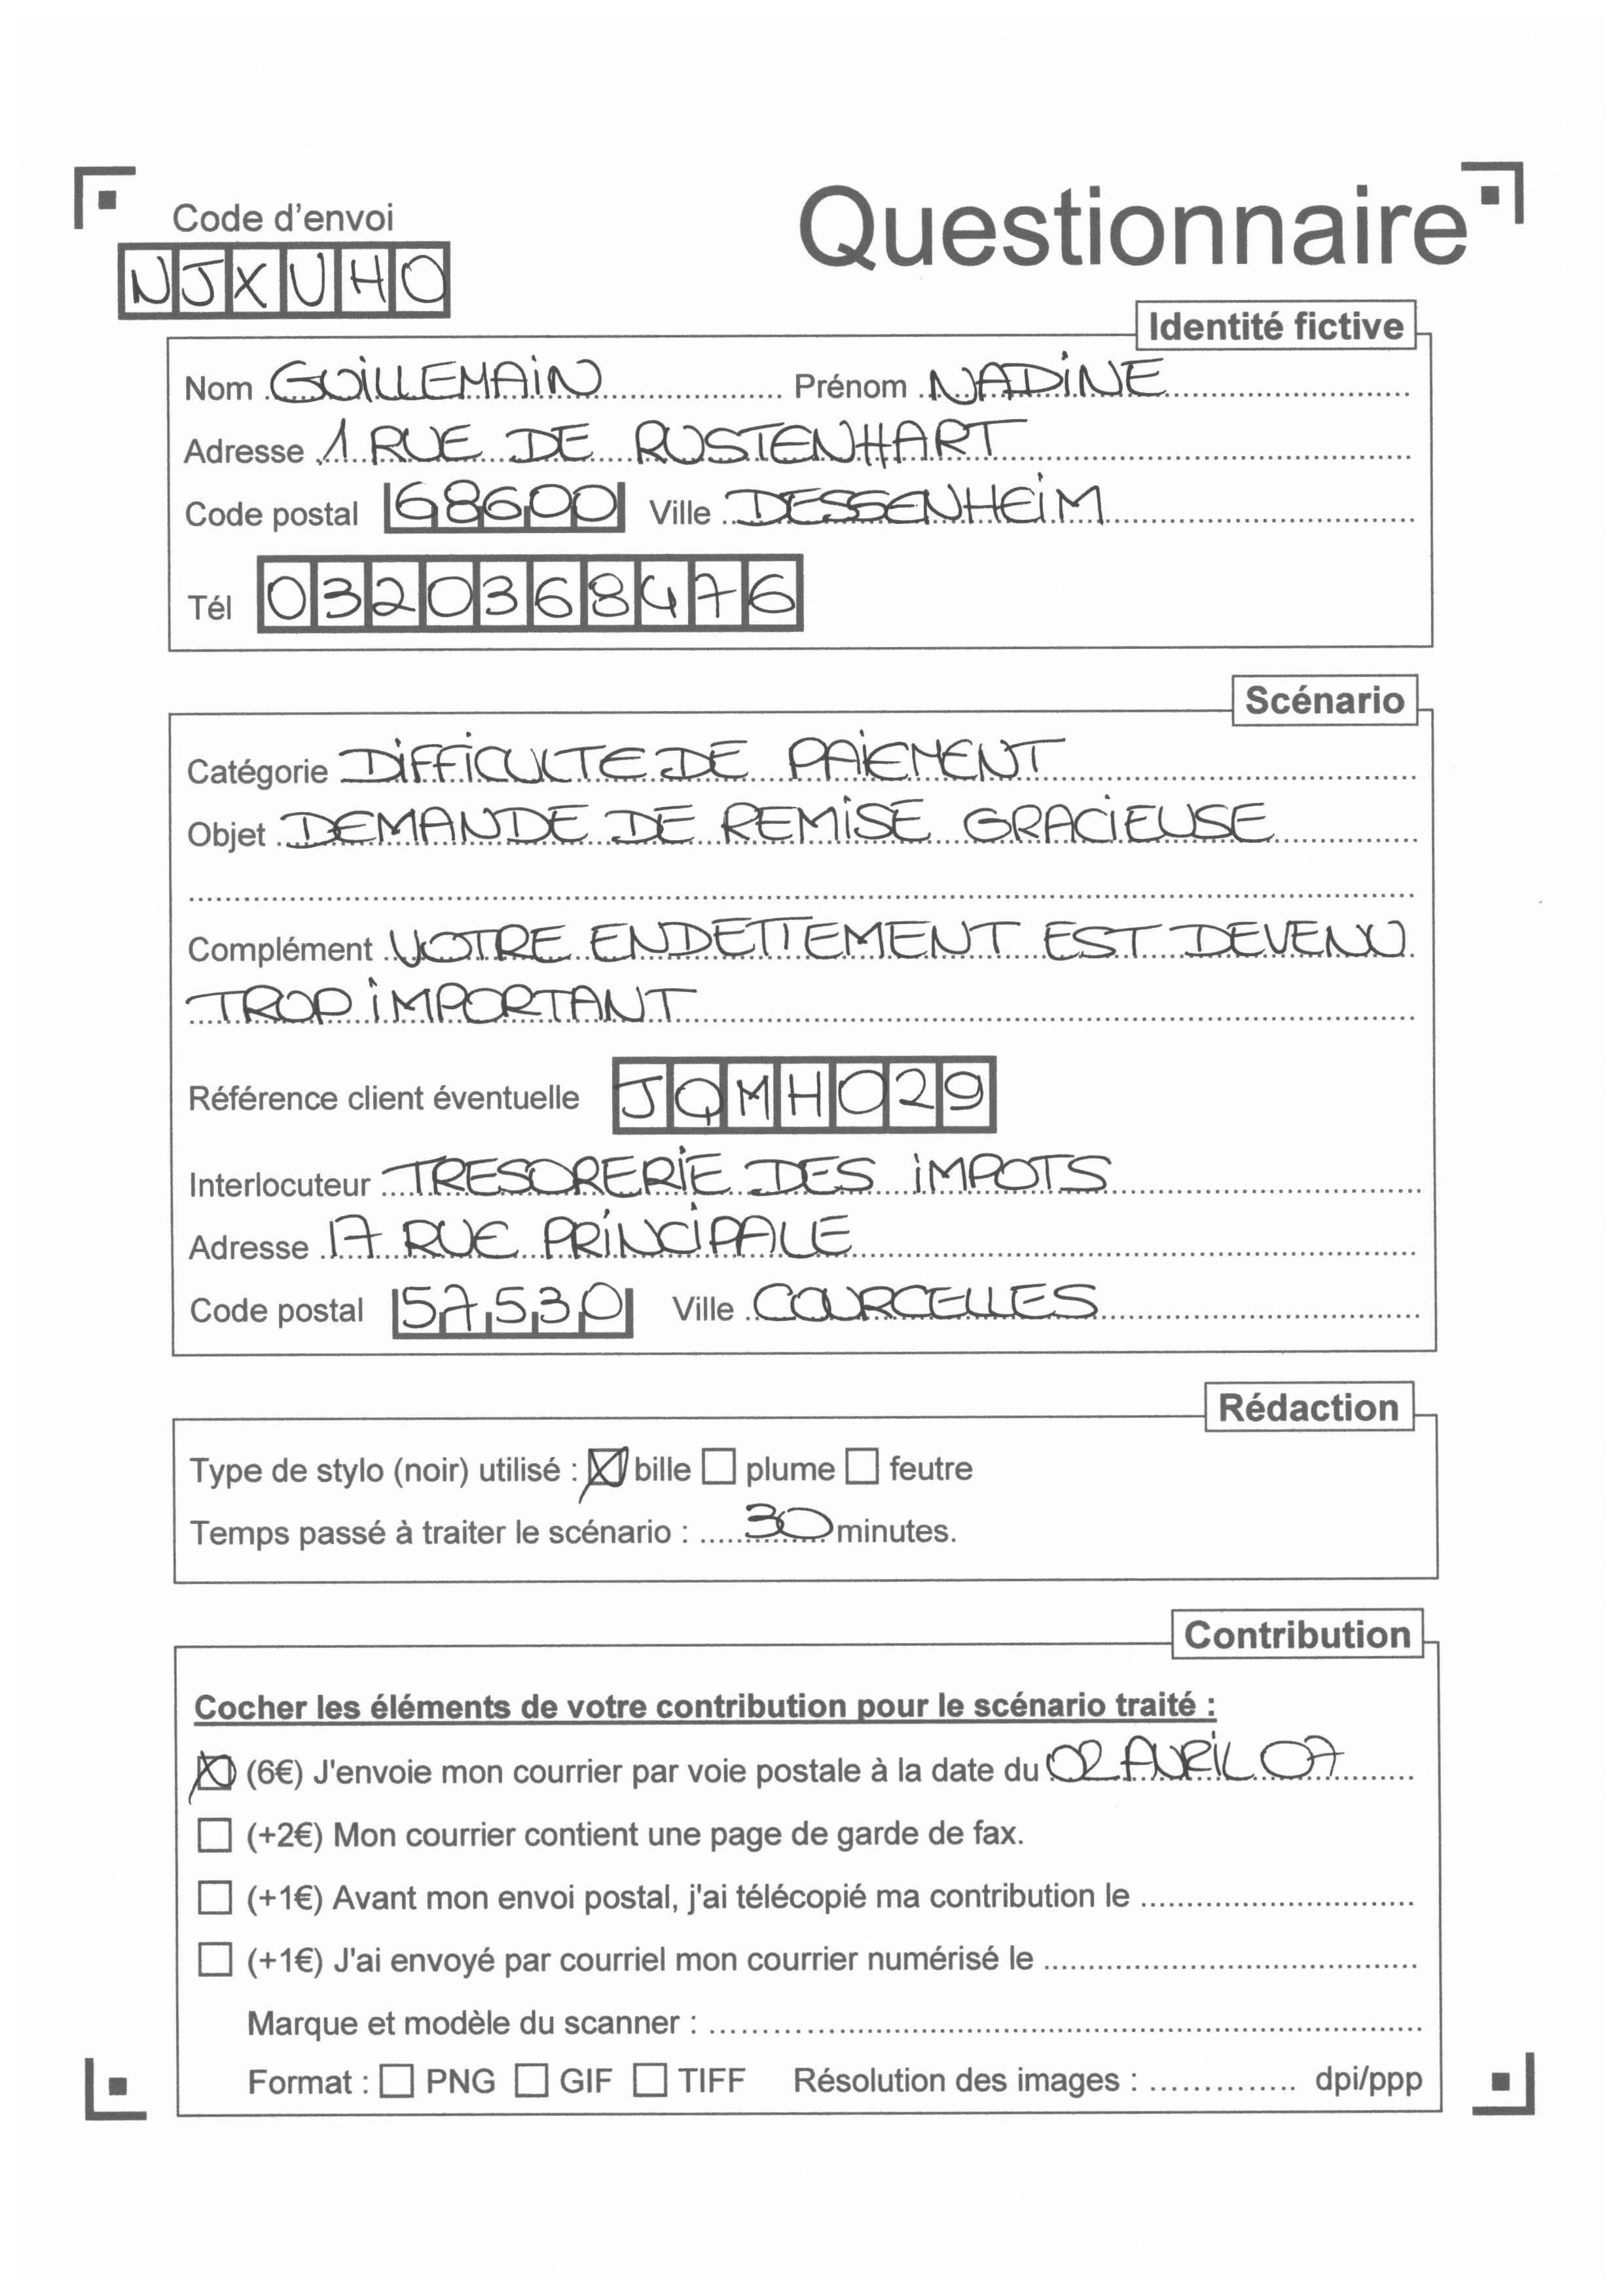 Code d'envoi
Questionnaire
NJXUHO
Identité fictive
Nom GUILLEMAIN Prénom NADINE
Adresse 1 RUE DE RUSTENHART
Code postal 68600 Ville DESSENHEIM
Tél 0320368476
Scénario
Catégorie DIFFICULTE DE PAIEMENT
Objet DEMANDE DE REMISE GRACIEUSE
Complément VOTRE ENDETTEMENT EST DEVENU
TROP IMPORTANT
Référence client éventuelle JQMH029
Interlocuteur TRESORERIE DES IMPOTS
Adresse 17 RUE PRINCIPALE
Code postal 57530 Ville COURCELLES
Rédaction
Type de stylo (noir) utilisé : bille plume feutre
Temps passé à traiter le scénario : 30 minutes.
Contribution
Cocher les éléments de votre contribution pour le scénario traité :
(6€) J'envoie mon courrier par voie postale à la date du 02 AVRIL 07
(+2€) Mon courrier contient une page de garde de fax.
(+1€) Avant mon envoi postal, j'ai télécopié ma contribution le
(+1€) J'ai envoyé par courriel mon courrier numérisé le
Marque et modèle du scanner :
Format : PNG GIF TIFF Résolution des images : dpi/ppp